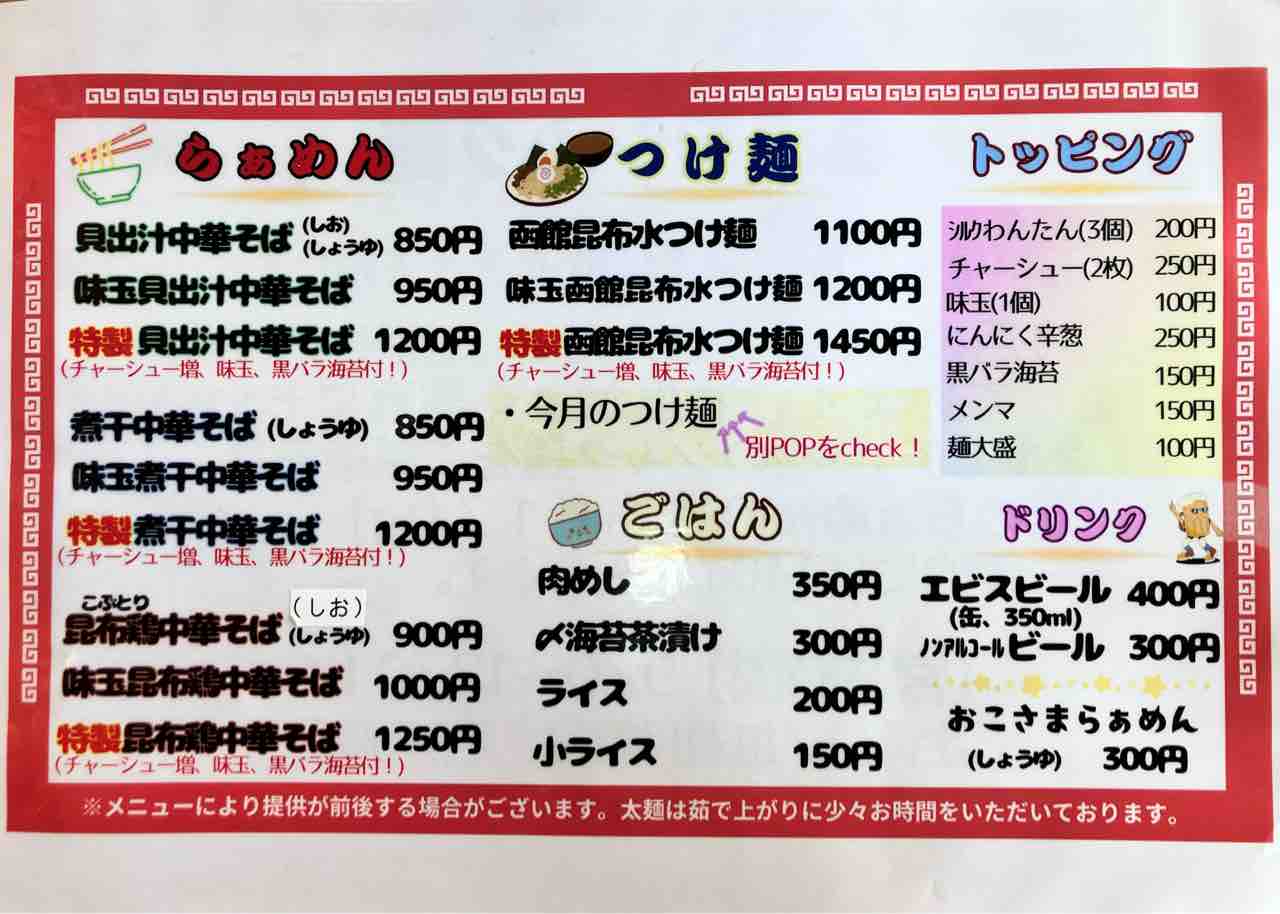 らぁめん
貝出汁中華そば (しお) (しょうゆ) 850円
味玉貝出汁中華そば 950円
特製貝出汁中華そば 1200円
(チャーシュー増、味玉、黒バラ海苔付！)
煮干中華そば (しょうゆ) 850円
味玉煮干中華そば 950円
特製煮干中華そば 1200円
(チャーシュー増、味玉、黒バラ海苔付！)
こぶとり
昆布鶏中華そば (しお) (しょうゆ) 900円
味玉昆布鶏中華そば 1000円
特製昆布鶏中華そば 1250円
(チャーシュー増、味玉、黒バラ海苔付！)
つけ麺
函館昆布水つけ麺 1100円
味玉函館昆布水つけ麺 1200円
特製函館昆布水つけ麺 1450円
(チャーシュー増、味玉、黒バラ海苔付！)
・今月のつけ麺
別POPをcheck！
ごはん
肉めし 350円
〆海苔茶漬け 300円
ライス 200円
小ライス 150円
トッピング
ｼﾙｸわんたん(3個) 200円
チャーシュー(2枚) 250円
味玉(1個) 100円
にんにく辛葱 250円
黒バラ海苔 150円
メンマ 150円
麺大盛 100円
ドリンク
ヱビスビール 400円
(缶、350ml)
ﾉﾝｱﾙｺｰﾙビール 300円
おこさまらぁめん
(しょうゆ) 300円
※メニューにより提供が前後する場合がございます。太麺は茹で上がりに少々お時間をいただいております。